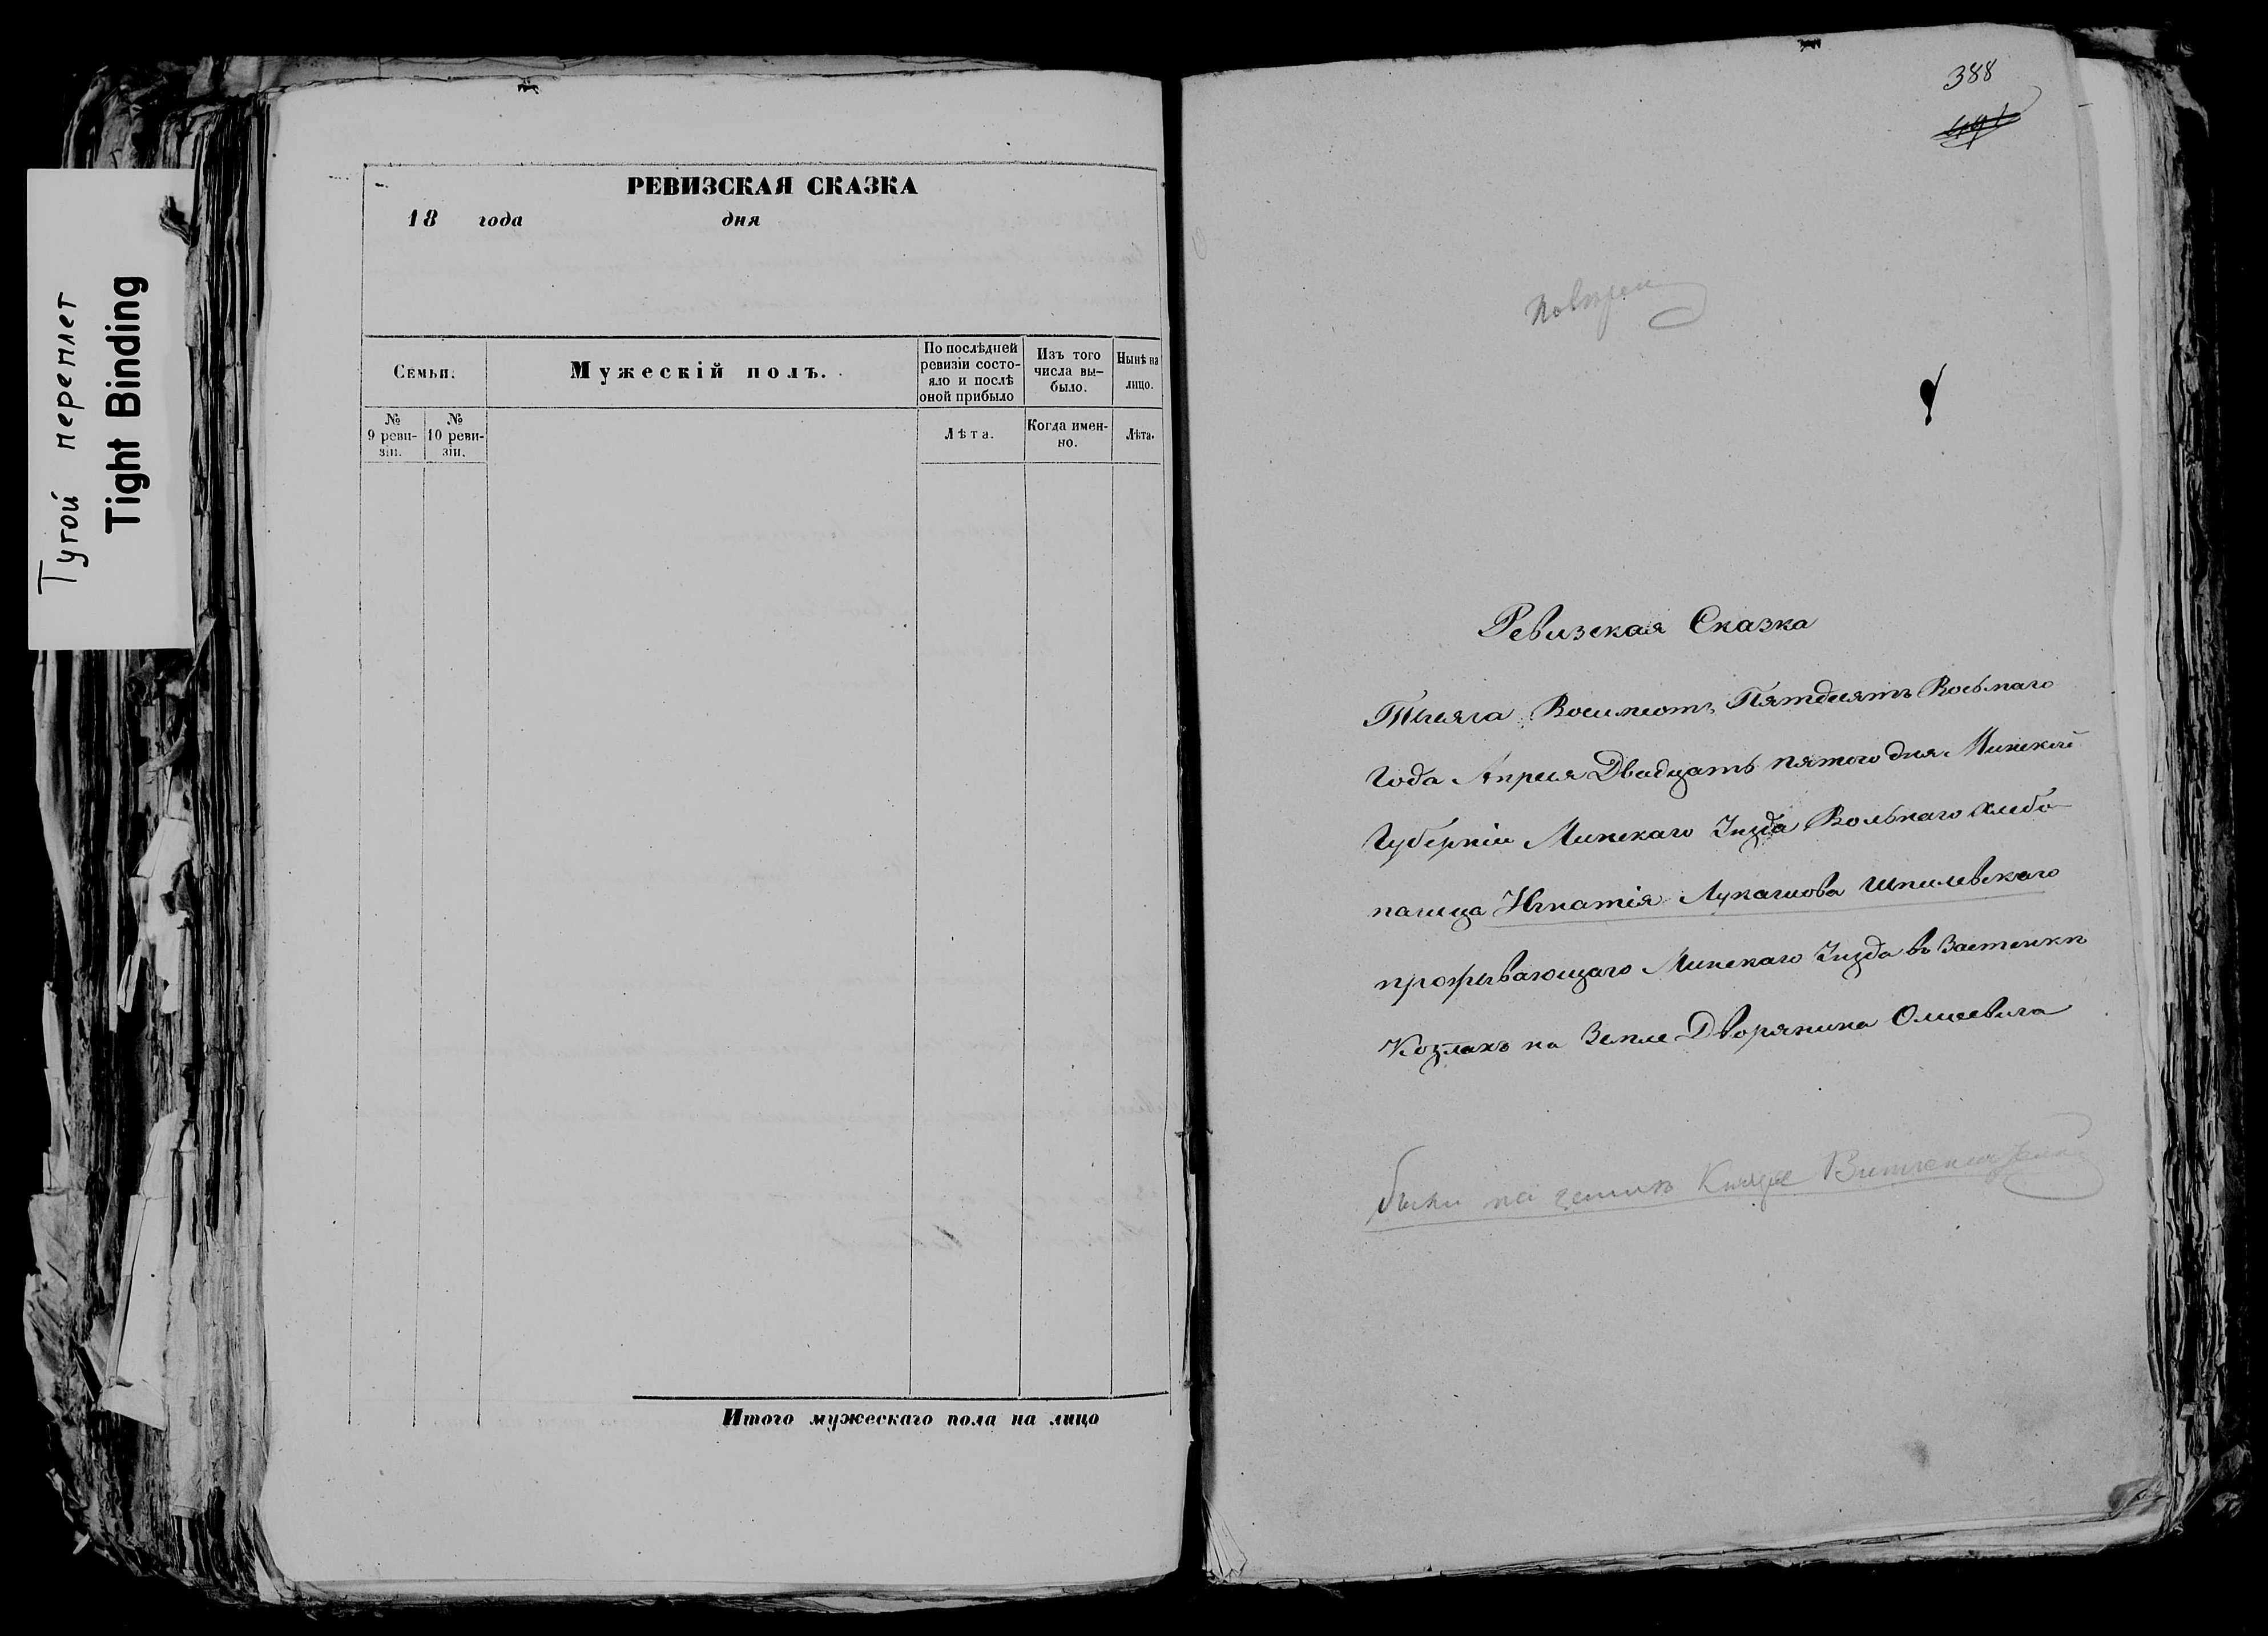 Тугой переплет
Tight Binding
РЕВИЗСКАЯ СКАЗКА
18 года дня
Семьи.
Мужескій полъ.
По послѣдней ревизіи состо-
яло и послѣ
оной прибыло
Изъ того
числа вы-
было.
Нынѣ на
лицо.
№
9 реви-
зіи.
№
10 реви-
зіи.
Лѣта.
Когда имен-
но.
Лѣта.
Итого мужескаго пола на лицо
388
Ревизская Сказка
Тысяча Восимсотъ Пятдесятъ Восьмаго
Года Апреля Двадцать пятого дня Минской
Губерніи Минскаго Уезда Вольнаго хлебо-
пашца Игнатія Лукашова Шпилевскаго
проживающаго Минскаго Уезда въ Застенкѣ
Козлахъ на Земле Дворянина
на земли Князя